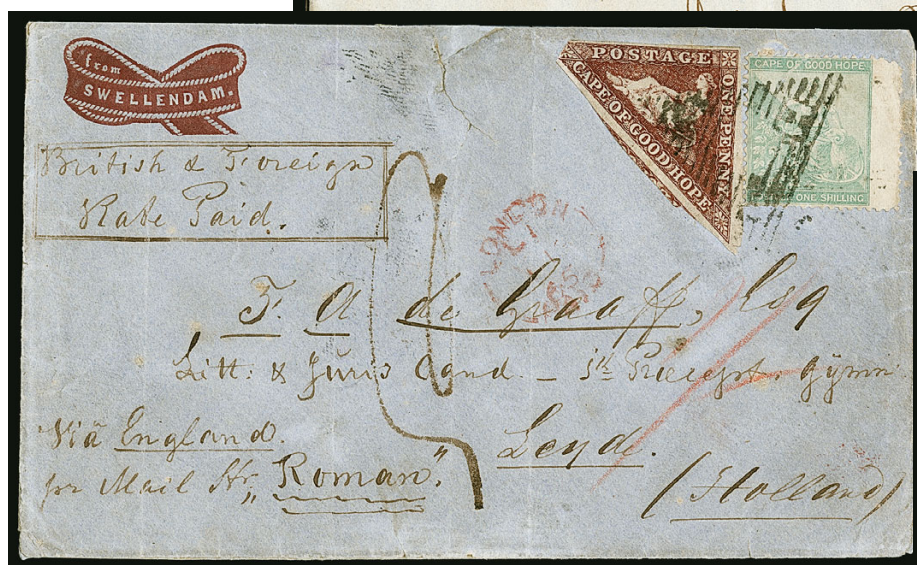 from
SWELLENDAM.
POSTAGE
CAPE OF GOOD HOPE
ONE PENNY
CAPE OF GOOD HOPE
ONE SHILLING
British & Foreign
Rate Paid.
LONDON
PAID
T. A de Graaff, Esq
Litt: & Juris Cand. – Præcept. gymn.
Leyd.
(Holland)
Viâ England.
pr Mail Str. „Roman".